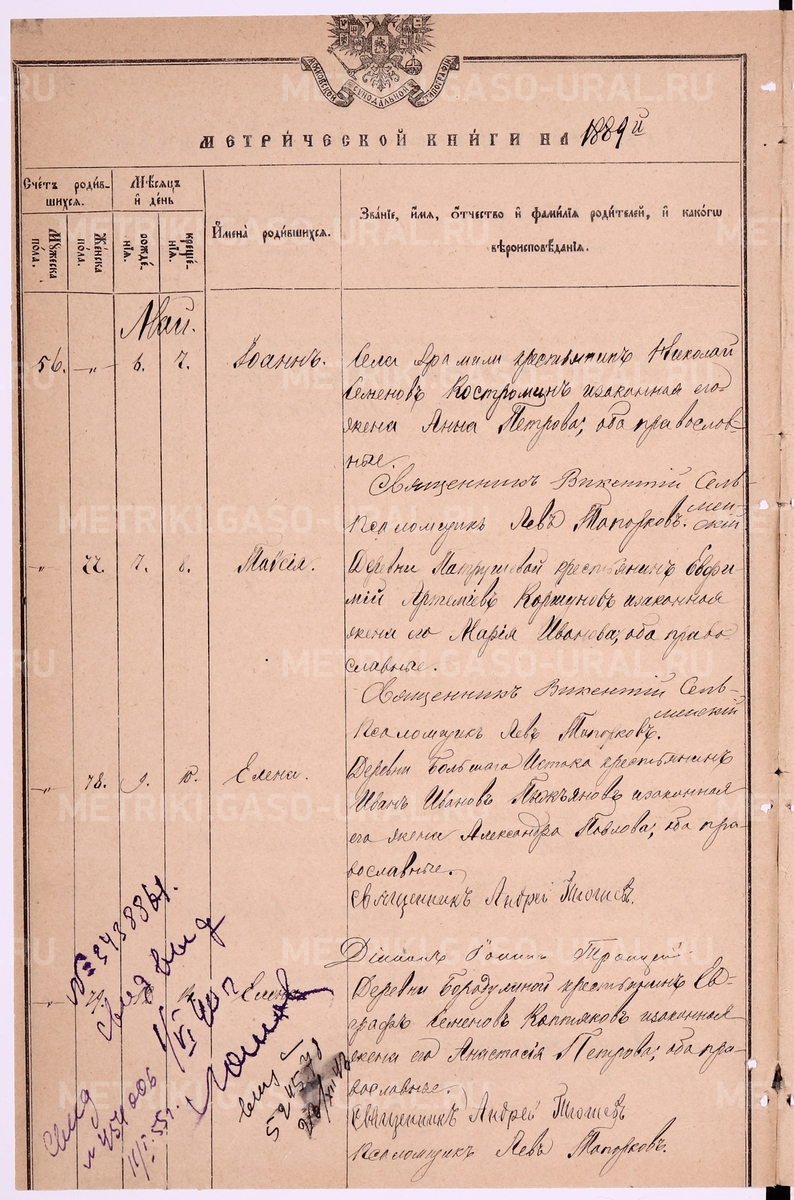 МОСКОВСКОЙ СѴНОДАЛЬНОЙ ТИПОГРАФІИ
МЕТРИЧЕСКОЙ КНИГИ НА 1889й
Счетъ родив-
шихся.
Мѣсяцъ
и день
Имена родившихся.
Званіе, имя, отчество и фамилія родителей, и какогѡ
вѣроисповѣданія.
Мужеска
пола.
Женска
пола.
рожде-
нія.
креще-
нія.
Май.
56. -„- 6. 7. Іоаннъ. Села Арамили крестьянинъ Николай
Семеновъ Костроминъ и законная его
жена Анна Петрова; оба православ-
ные.
Священникъ Викентій Сель-
менскій
Псаломщикъ Левъ Топорковъ.
-„- 77. 7. 8. Таисія. Деревни Патрушевой крестьянинъ Евфи
мій Артеміевъ Коршуновъ и законная
жена его Марія Иванова; оба право-
славные.
Священникъ Викентій Сель-
менскій
Псаломщикъ Левъ Топорковъ.
-„- 78. 9. 10. Елена. Деревни Большаго Истока крестьянинъ
Иванъ Ивановъ и законная
его жена Александра Павлова; оба пра-
вославные.
Священникъ Андрей
Діаконъ Іоаннъ Троицкій
Елена Деревни Бородулиной крестьянинъ Ев-
графъ Семеновъ Коптяковъ и законная
жена его Анастасія Петрова; оба пра-
вославные.
Священникъ Андрей
Псаломщикъ Левъ Топорковъ.
№ 3438861.
Свид выд
Свид
№ 454006
METRIKI.GASO-URAL.RU